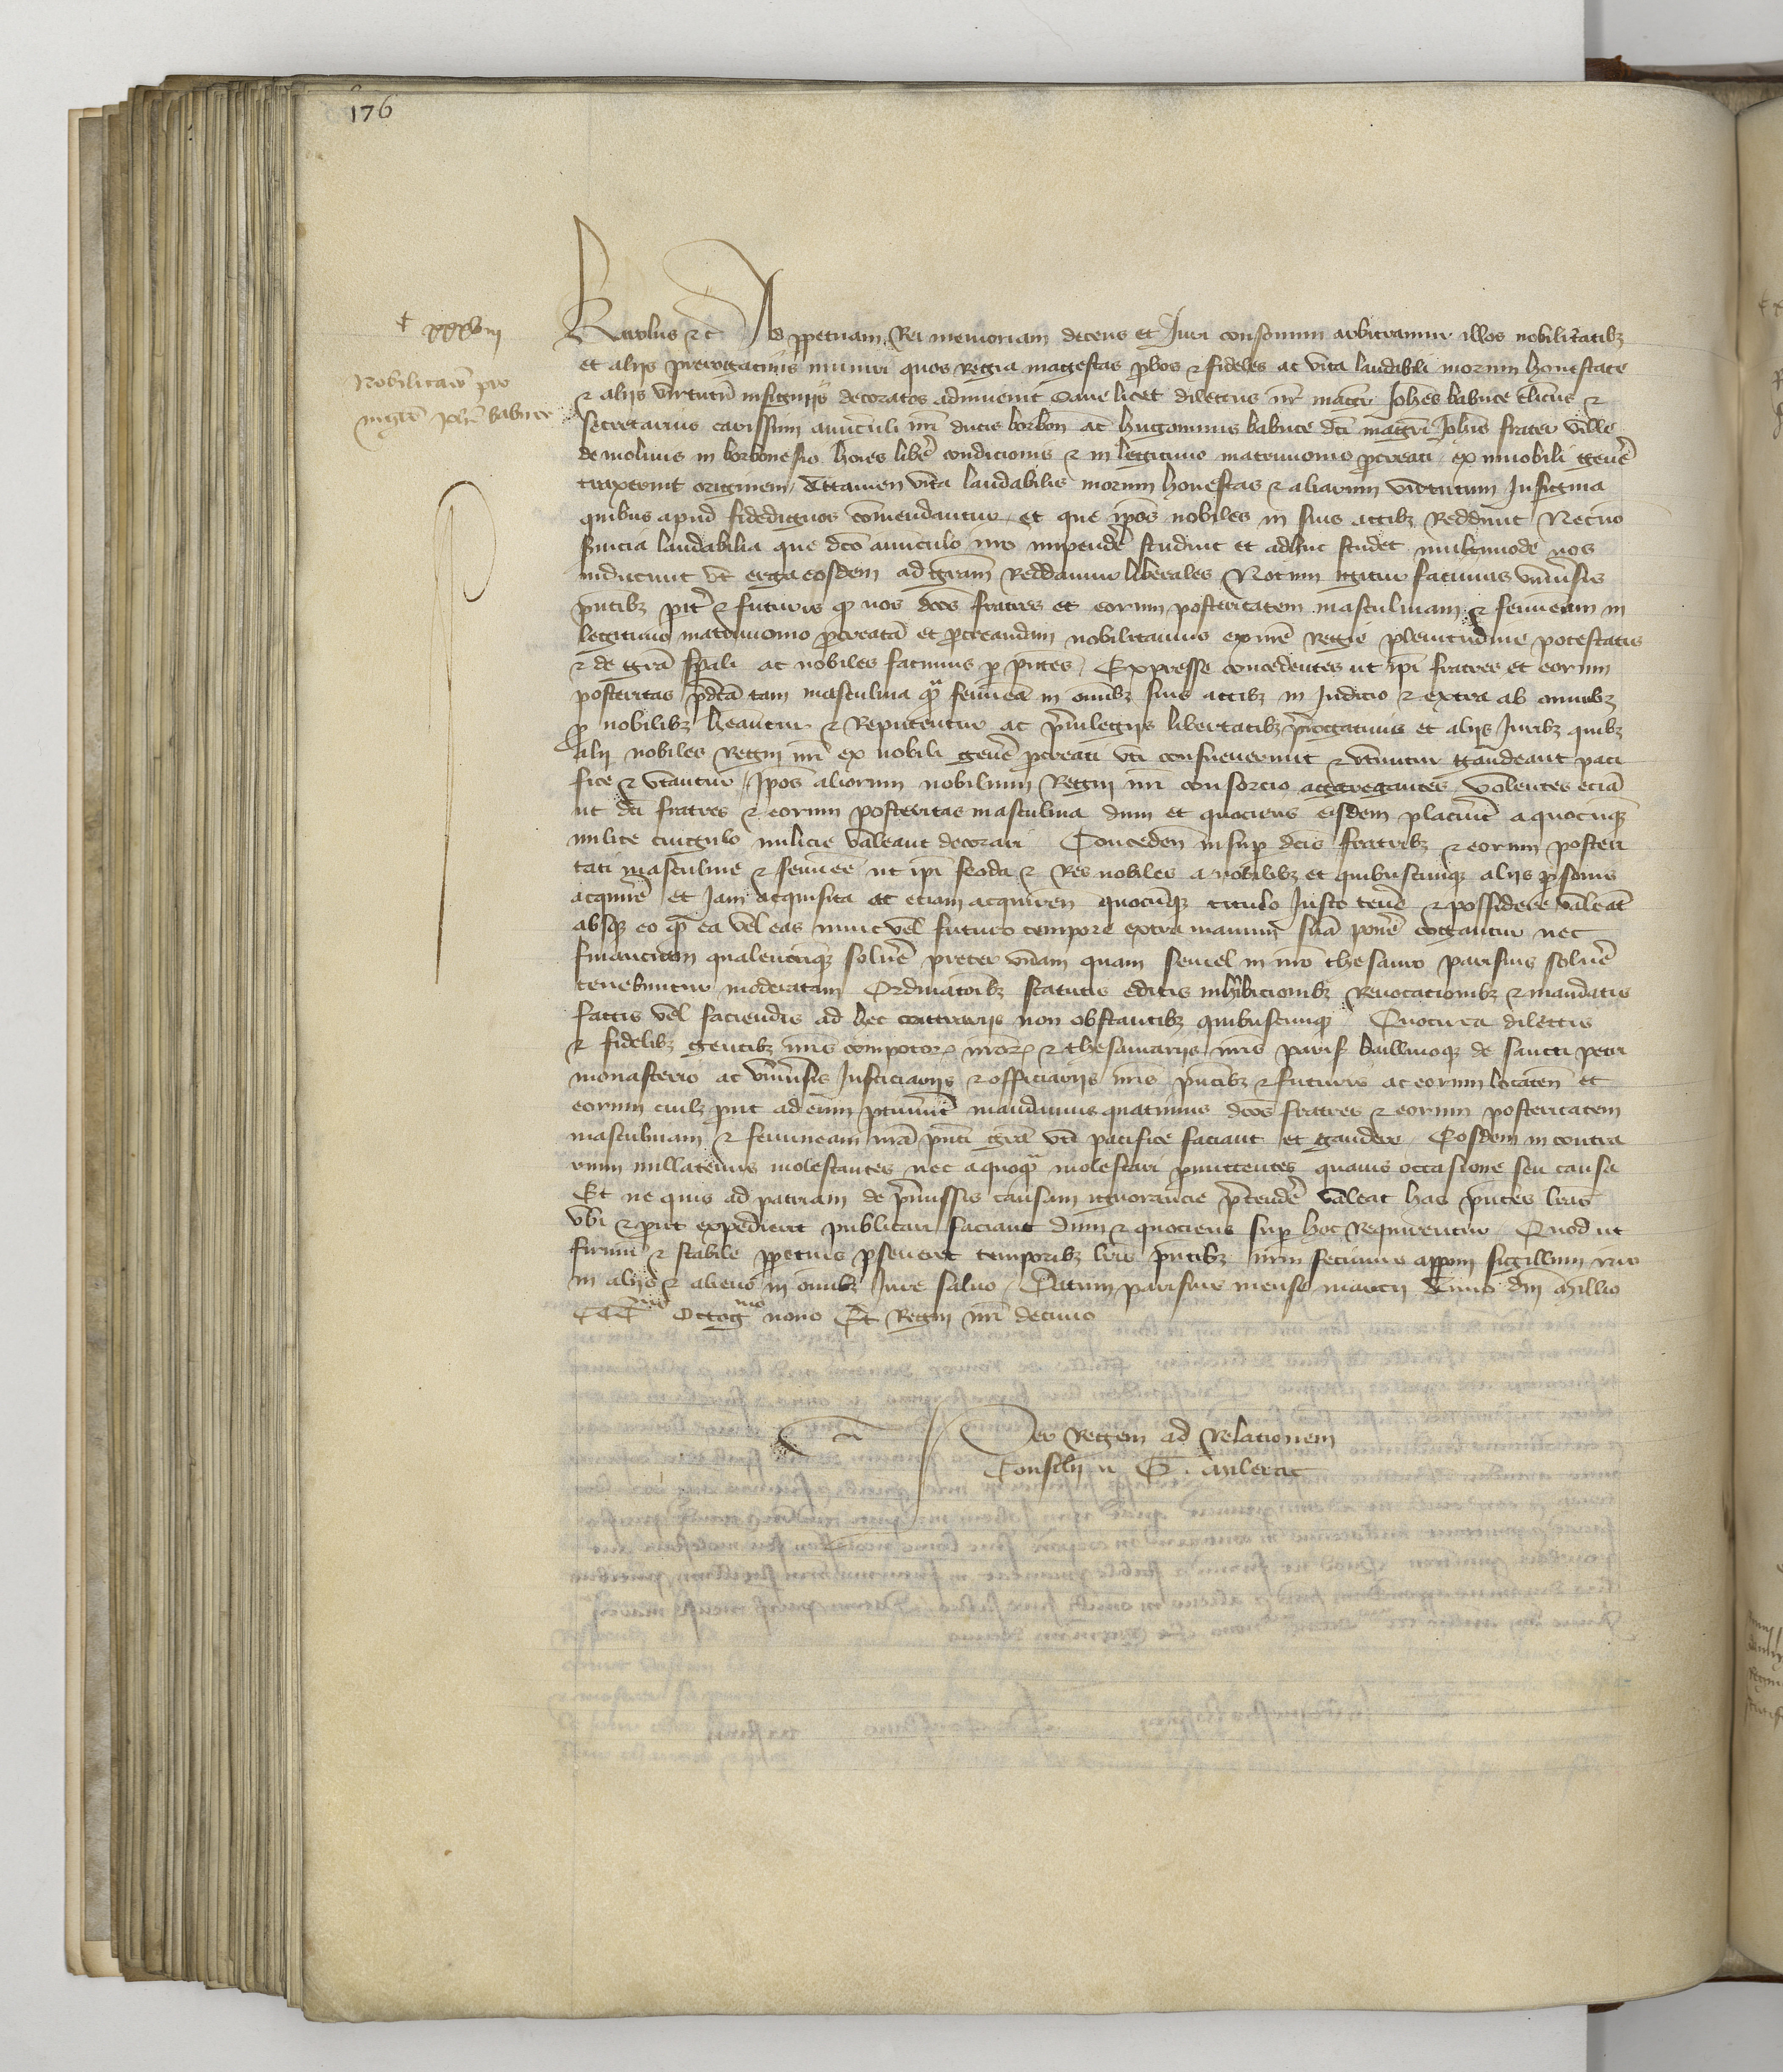 176
xxxviii
Nobilitatio pro
magro Johe babute
Karolus etc Ad ppetuam Rei memoriam decens et Juri consonum arbitramur illos nobilitatibz
et alijs prerogativis muniri quos Regia magestas pbos et fideles ac vita laudabili morum honestate
et alijs virtutu insignijs decoratos adinvenit Sane licet dilectus nr magr Johes babute clicus et
secretarius carissimi avunculi nri ducis borbon ac hugoninus babute dci magri Johis frater ville
de molinis in borbonesio hoies libere condicionis et in legitimo matrimonio pcreati ex innobili genere
traxerint originem, Attamen vita laudabilis morum honestas et aliarum virtutum Insignia
quibus apud fidedignos comendantur, et que ipos nobiles in suis actibz Reddunt Necno
suicia laudabilia que dco avunculo nro impende studuit et adhuc studet multimode nos
inducunt vt erga eosdem ad gram Reddamur liberales Notum igitur facimus universis
pntibz pit et futuris q nos dcos fratres et eorum posteritatem masculinam et femineam in
legitimo matrimonio pcreata et pcreandam nobilitamus ex nre Regie plenitudine potestatis
et de gra spali ac nobiles facimus p pntes, Expresse concedentes ut ipi fratres et eorum
posteritas pdca tam masculina q feminea in omibz suis actibz in Judicio et extra ab omnibz
p nobilibz heantur et Reputentur ac privilegijs libertatibz prerogativis et alijs Juribz quibz
alij nobiles Regni nri ex nobili genere pcreati vti consueverunt et vtuntur gaudeant paci
fice et vtantur, Ipos aliorum nobilium Regni nri consorcio aggregantes, Volentes ecia
ut dci fratres et eorum posteritas masculina dum et quociens eisdem placuit a quocunqz
milite cingulo milicie valeant decorari Conceden insup dcis fratribz et eorum posteri
tati masculine et feminee ut ipi feoda et Res nobiles a nobilibz et quibuscunqz alijs psonis
acquire et Jam acquisita ac etiam acquiren quocunqz titulo Justo tenere et possidere valeat
absqz eo q ea vel eas nunc vel futuro tempore extra manum sua ponere cogantur nec
financiam qualemcunqz solvere preter unam quam semel in nro thesauro parisius solvere
tenebuntur moderatam Ordinatoibz statutis edictis inhibicionibz Revocationibz et mandatis
factis vel faciendis ad hec contrarijs non obstantibz quibuscunqz, Quocirca dilectis
et fidelibz gentibz nris compotor nror et thesaurarijs nris paris baillivoqz de sancti petri
monasterio ac univsis Justiciarijs et officiarijs nris pntibz et futuris ac eorum locaten et
eorum cuilz put ad eum ptinuit mandamus quatinus dcos fratres et eorum posteritatem
masculinam et femineam nra pnti gra vti pacifice faciant et gaudere, Eosdem in contra
rium nullatenus molestantes nec a quoqz molestari pmittentes quavis occasione seu causa
Et ne quis ad patriam de pmissis causam ignorancie ptendere valeat has pntes lras
vbi et put expedierit publicari faciant dum et quociens sup hoc Requirentur, Quod ut
firmu et stabile ppetuis pseveret temporibz lris pntibz nrm fecimus apponi sigillum nro
in alijs et alieno in omibz Jure salvo, Datum parisius mense marcij Anno dni Millio
CCC Octog nono Et Regni nri decimo
Per Regem ad Relationem
Consilij